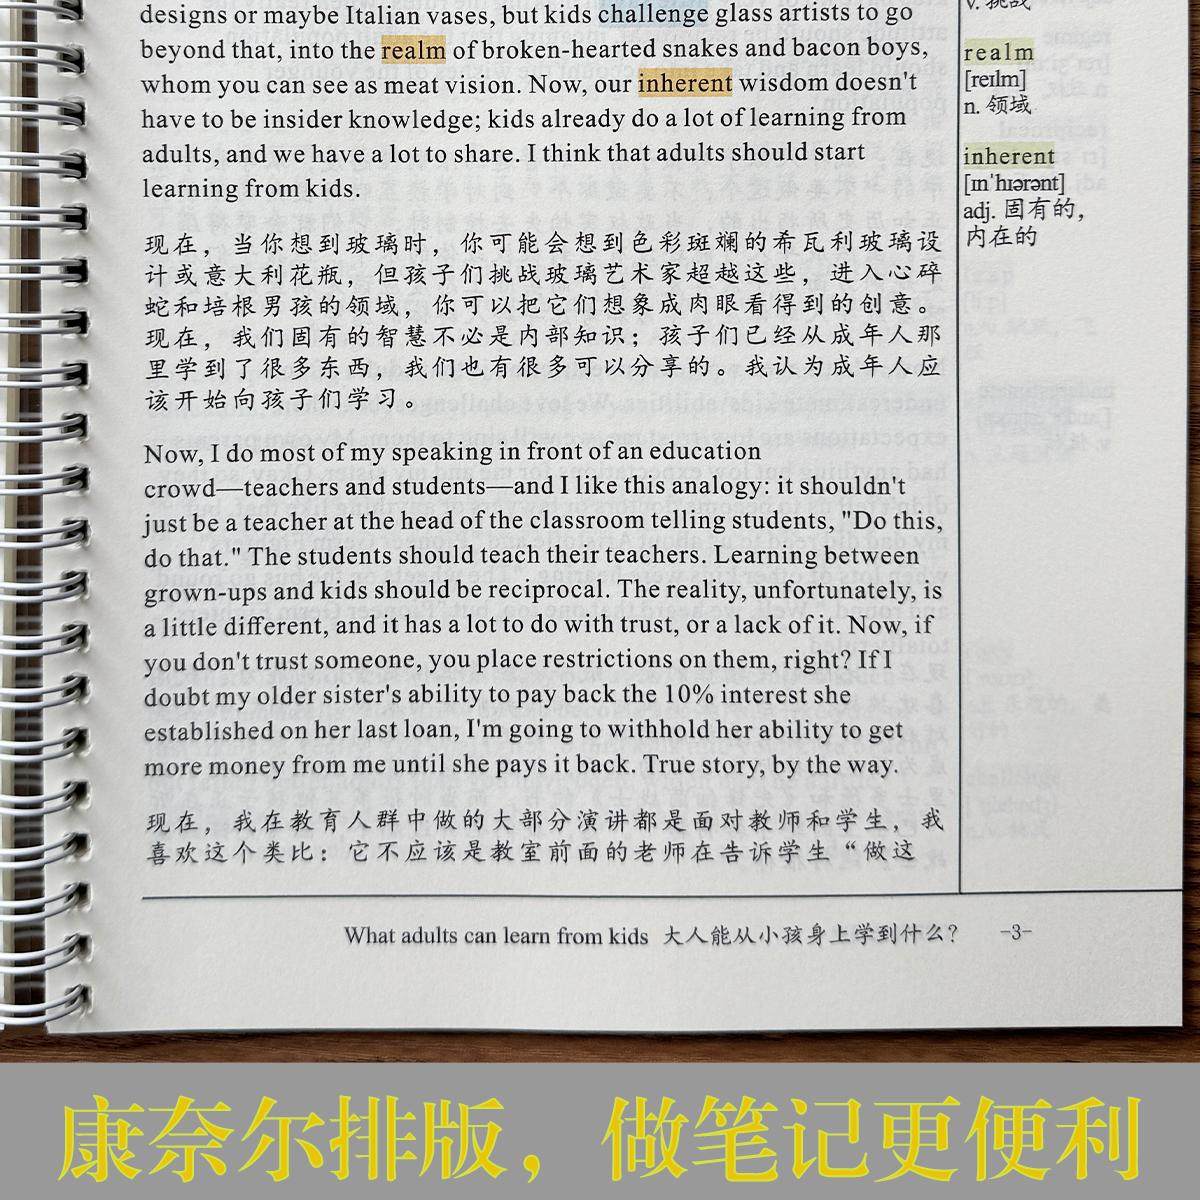 designs or maybe Italian vases, but kids challenge glass artists to go
beyond that, into the realm of broken-hearted snakes and bacon boys,
whom you can see as meat vision. Now, our inherent wisdom doesn't
have to be insider knowledge; kids already do a lot of learning from
adults, and we have a lot to share. I think that adults should start
learning from kids.
现在，当你想到玻璃时，你可能会想到色彩斑斓的希瓦利玻璃设
计或意大利花瓶，但孩子们挑战玻璃艺术家超越这些，进入心碎
蛇和培根男孩的领域，你可以把它们想象成肉眼看得到的创意。
现在，我们固有的智慧不必是内部知识；孩子们已经从成年人那
里学到了很多东西，我们也有很多可以分享的。我认为成年人应
该开始向孩子们学习。
Now, I do most of my speaking in front of an education
crowd—teachers and students—and I like this analogy: it shouldn't
just be a teacher at the head of the classroom telling students, "Do this,
do that." The students should teach their teachers. Learning between
grown-ups and kids should be reciprocal. The reality, unfortunately, is
a little different, and it has a lot to do with trust, or a lack of it. Now, if
you don't trust someone, you place restrictions on them, right? If I
doubt my older sister's ability to pay back the 10% interest she
established on her last loan, I'm going to withhold her ability to get
more money from me until she pays it back. True story, by the way.
现在，我在教育人群中做的大部分演讲都是面对教师和学生，我
喜欢这个类比：它不应该是教室前面的老师在告诉学生“做这
v. 挑战
realm
[reɪlm]
n. 领域
inherent
[ɪnˈhɪərənt]
adj. 固有的，
内在的
What adults can learn from kids 大人能从小孩身上学到什么？ -3-
康奈尔排版，做笔记更便利